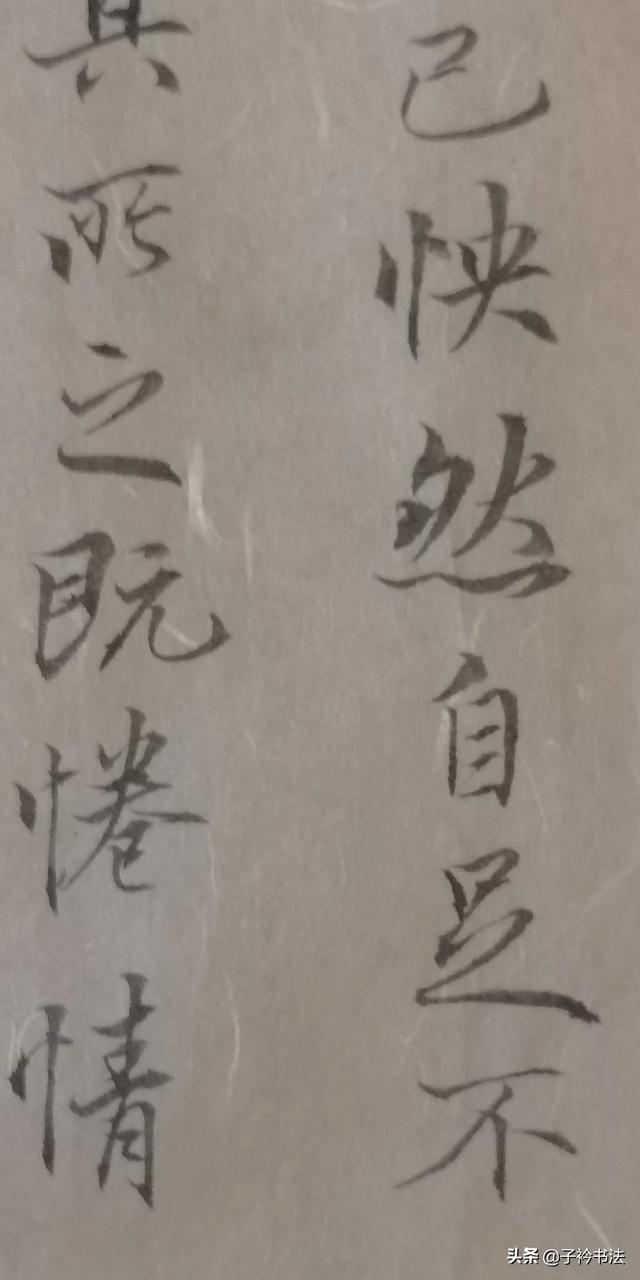 己怏然自足不
其所之既惓情
头条 @子衿书法